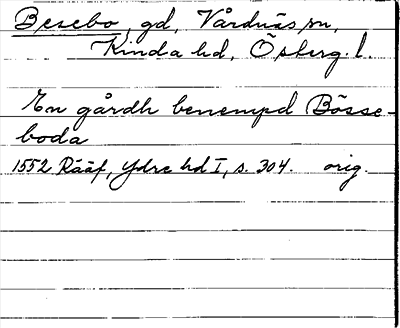 Besebo, gd, Vårdnäs sn,
Kinda hd, Österg. l.
En gårdh benempd Bösse-
boda
1552 Rääf, Ydre hd I, s. 304. orig.